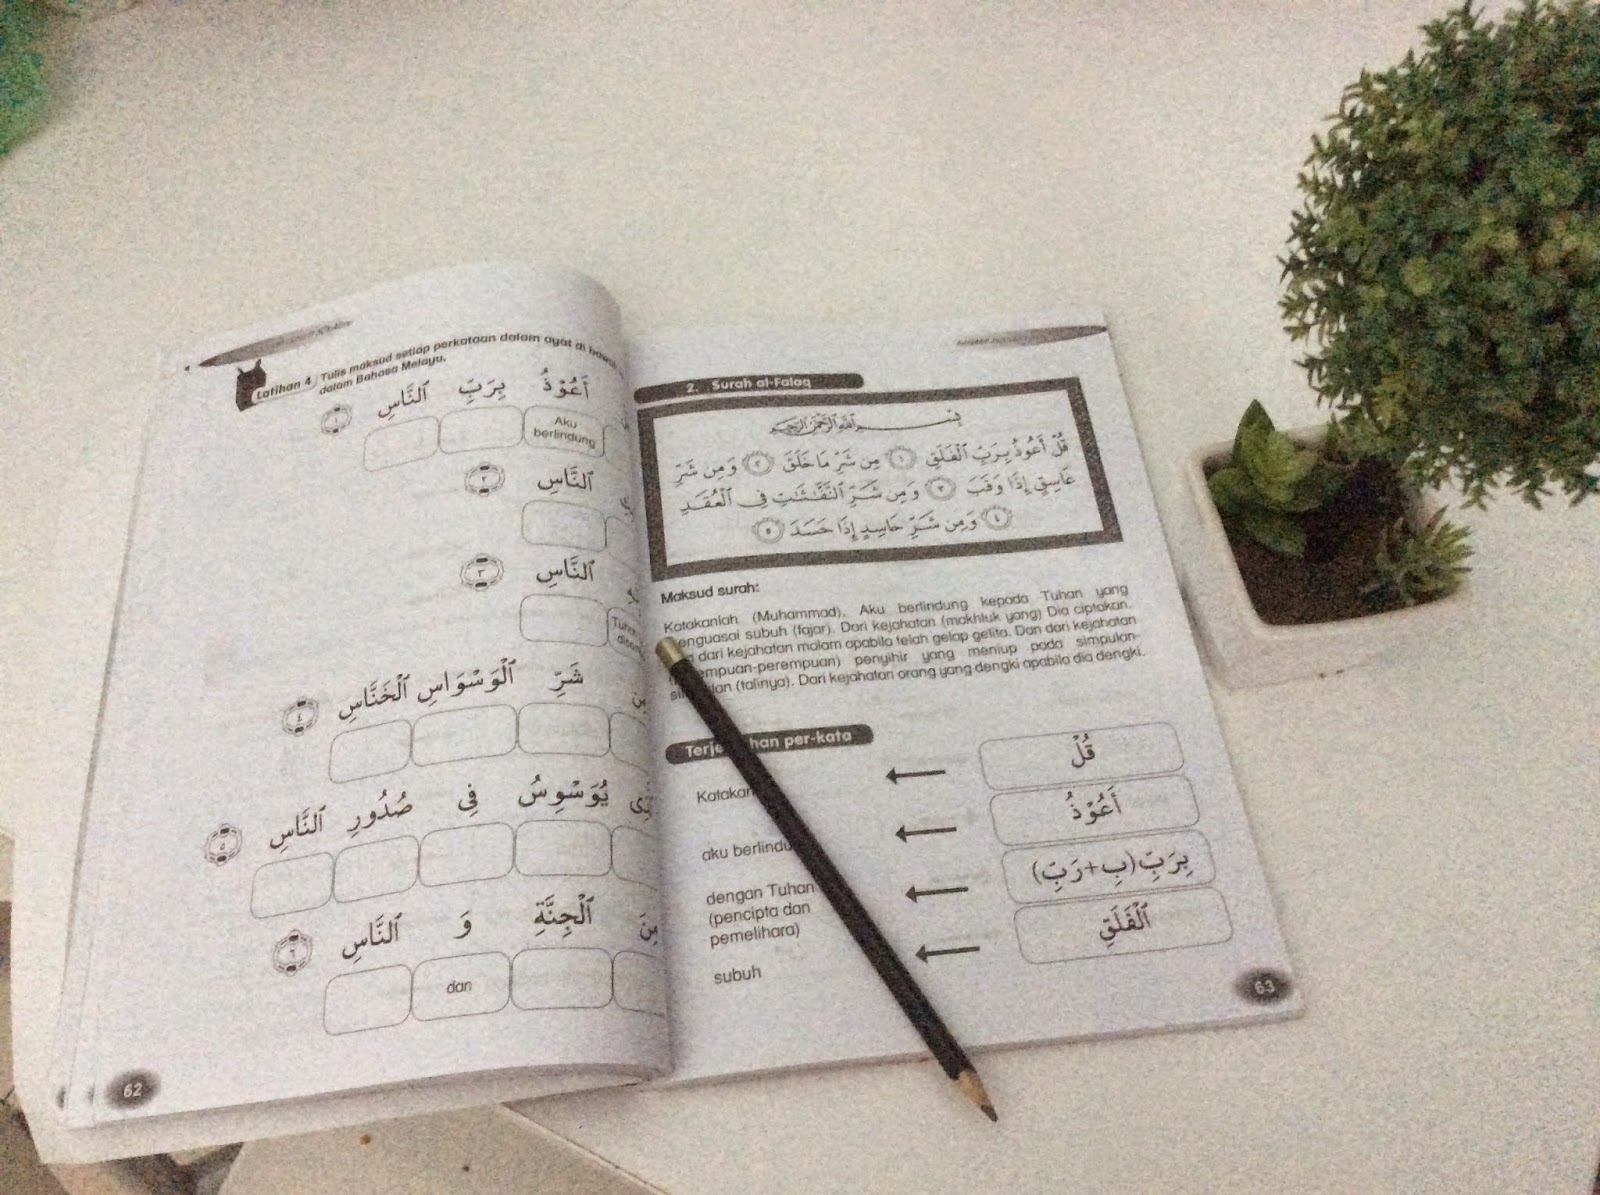 Latihan 4 Tulis maksud setiap perkataan dalam ayat di
dalam Bahasa Melayu.
أَعُوْذُ بِرَبِّ ٱلنَّاسِ ١
Aku
berlindung
ٱلنَّاسِ ٢
ٱلنَّاسِ ٣
شَرِّ ٱلْوَسْوَاسِ ٱلْخَنَّاسِ ٤
يُوَسْوِسُ فِى صُدُورِ ٱلنَّاسِ ٥
مِنَ ٱلْجِنَّةِ وَ ٱلنَّاسِ ٦
dan
62
2. Surah al-Falaq
بِسْمِ ٱللَّهِ ٱلرَّحْمَٰنِ ٱلرَّحِيمِ
قُلْ أَعُوذُ بِرَبِّ ٱلْفَلَقِ ١ مِن شَرِّ مَا خَلَقَ ٢ وَمِن شَرِّ
غَاسِقٍ إِذَا وَقَبَ ٣ وَمِن شَرِّ ٱلنَّفَّٰثَٰتِ فِى ٱلْعُقَدِ
٤ وَمِن شَرِّ حَاسِدٍ إِذَا حَسَدَ ٥
Maksud surah:
Katakanlah (Muhammad), Aku berlindung kepada Tuhan yang
menguasai subuh (fajar). Dari kejahatan (makhluk yang) Dia ciptakan.
dari kejahatan malam apabila telah gelap gelita. Dan dari kejahatan
penyihir yang meniup pada simpulan-
(talinya). Dari kejahatan orang yang dengki apabila dia dengki.
per-kata
قُلْ
أَعُوْذُ
aku
dengan Tuhan بِرَبِّ (بِ+رَبِّ)
(pencipta dan
pemelihara)
subuh ٱلْفَلَقِ
63